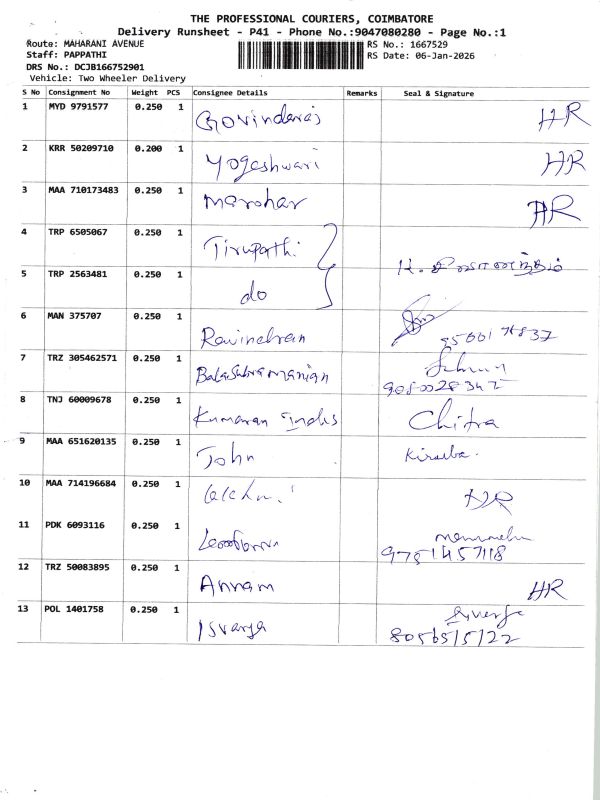 THE PROFESSIONAL COURIERS, COIMBATORE
Delivery Runsheet - P41 - Phone No.:9047080280 - Page No.:1
Route: MAHARANI AVENUE RS No.: 1667529
Staff: PAPPATHI RS Date: 06-Jan-2026
DRS No.: DCJB166752901
Vehicle: Two Wheeler Delivery
S No Consignment No Weight PCS Consignee Details Remarks Seal & Signature
1 MYD 9791577 0.250 1 Govindaraj HR
2 KRR 50209710 0.200 1 Yogeshwari HR
3 MAA 710173483 0.250 1 Manohar HR
4 TRP 6505067 0.250 1 Tirupathi
5 TRP 2563481 0.250 1 do
6 MAN 375707 0.250 1 Ravindran
7 TRZ 305462571 0.250 1 Balasubramanian
8 TNJ 60009678 0.250 1 Kumaran Indus Chitra
9 MAA 651620135 0.250 1 John
10 MAA 714196684 0.250 1 NR
11 PDK 6093116 0.250 1 9751457118
12 TRZ 50083895 0.250 1 Annam HR
13 POL 1401758 0.250 1 Isvarya 8056515122